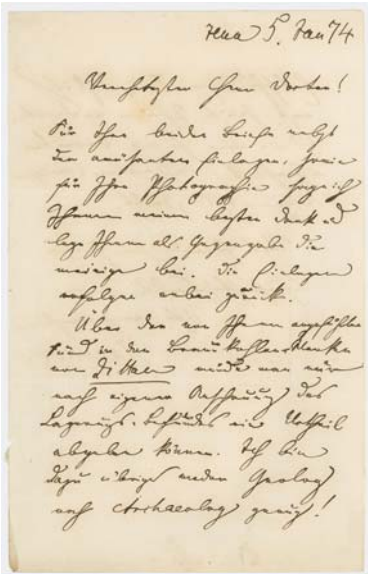 Jena 5. Jan 74
Verehrtester Herr Doctor!
Für Ihre beiden Briefe nebst
den amüsanten Einlagen, sowie
für Ihre Photographie sage ich
Ihnen meinen besten Dank und
lege Ihnen als Gegengabe die
meinige bei. Die Einlagen
erfolgen anbei zurück.
Über den von Ihnen angeführten
Fund in den Braunkohlen
von man nur
nach eigener Anschauung des
Lagerungs-Befundes ein Urtheil
abgeben können. Ich bin
dazu übrigens weder Geolog
noch Archaeolog genug!